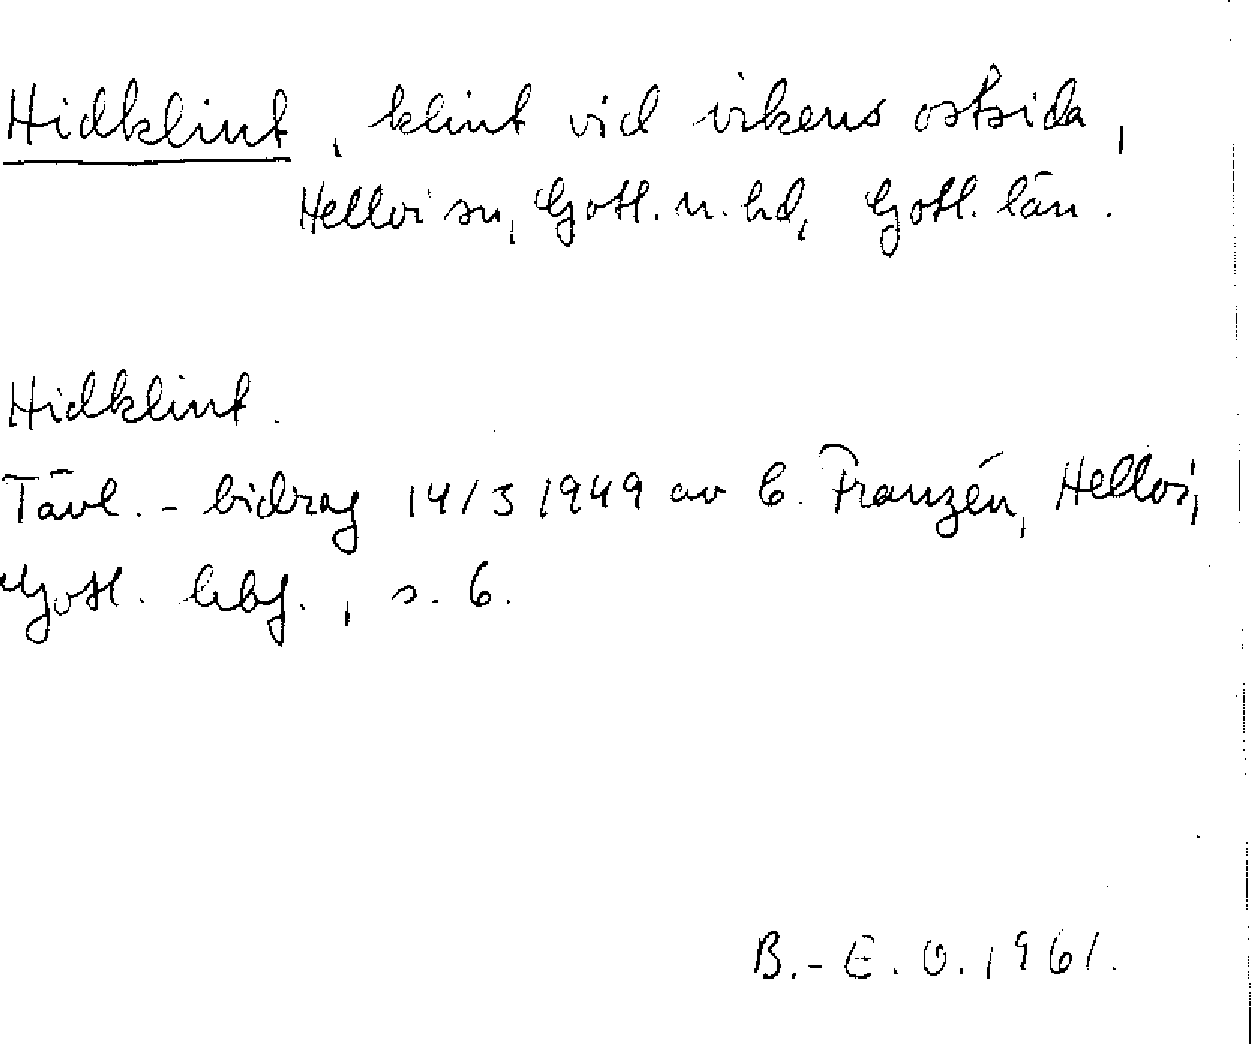 Hidklint, klint vid vikens ostsida,
Hellvi sn, Gotl. n. hd, Gotl. län.
Hidklint.
Tävl.-bidrag 14/3 1949 av C. Franzén, Hellvi,
Gotl. s. 6.
B.-E. O. 1961.